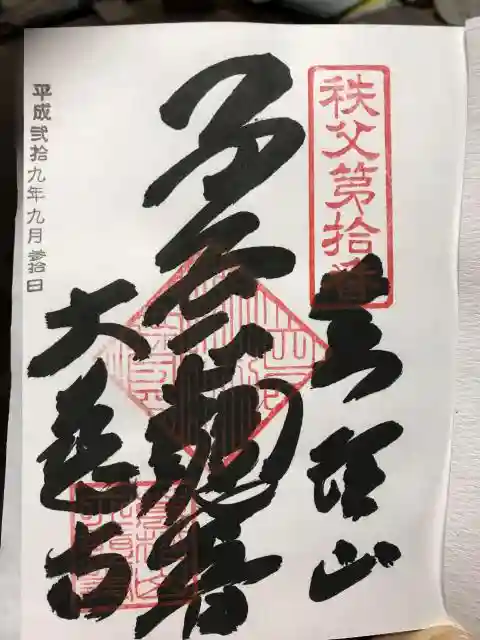 秩父第拾番
山
子安観音
大慈寺
平成弐拾九年九月参拾日